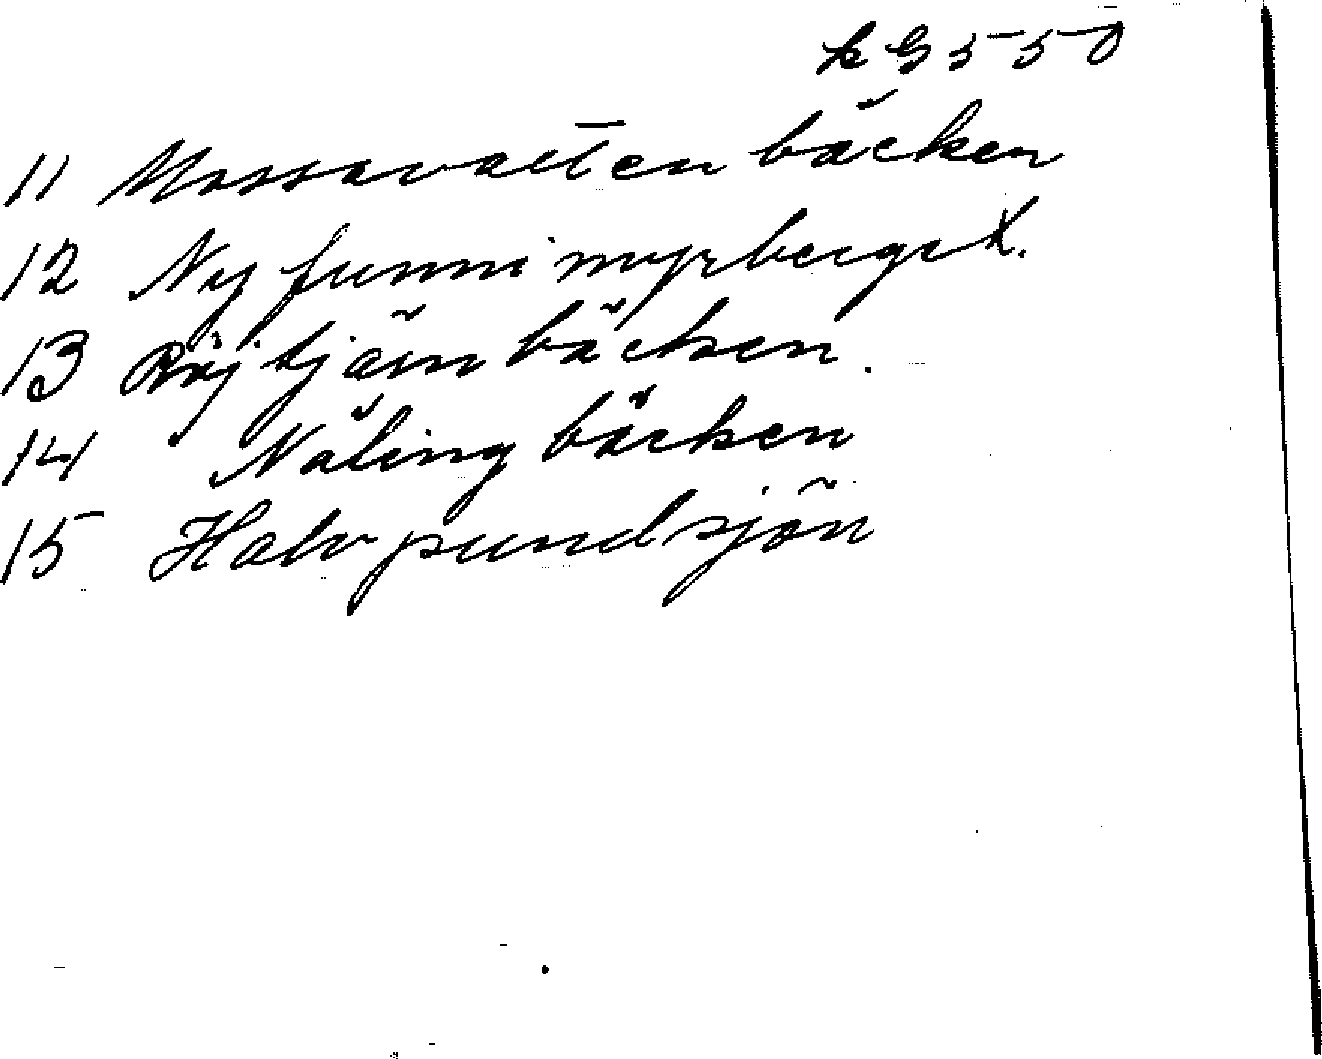 k G 5 5 0
11 Mossavattenbäcken
12 Nyfunnimyrberget.
13 Röjtjärnbäcken.
14 Nålingbäcken
15 Halvpundsjön